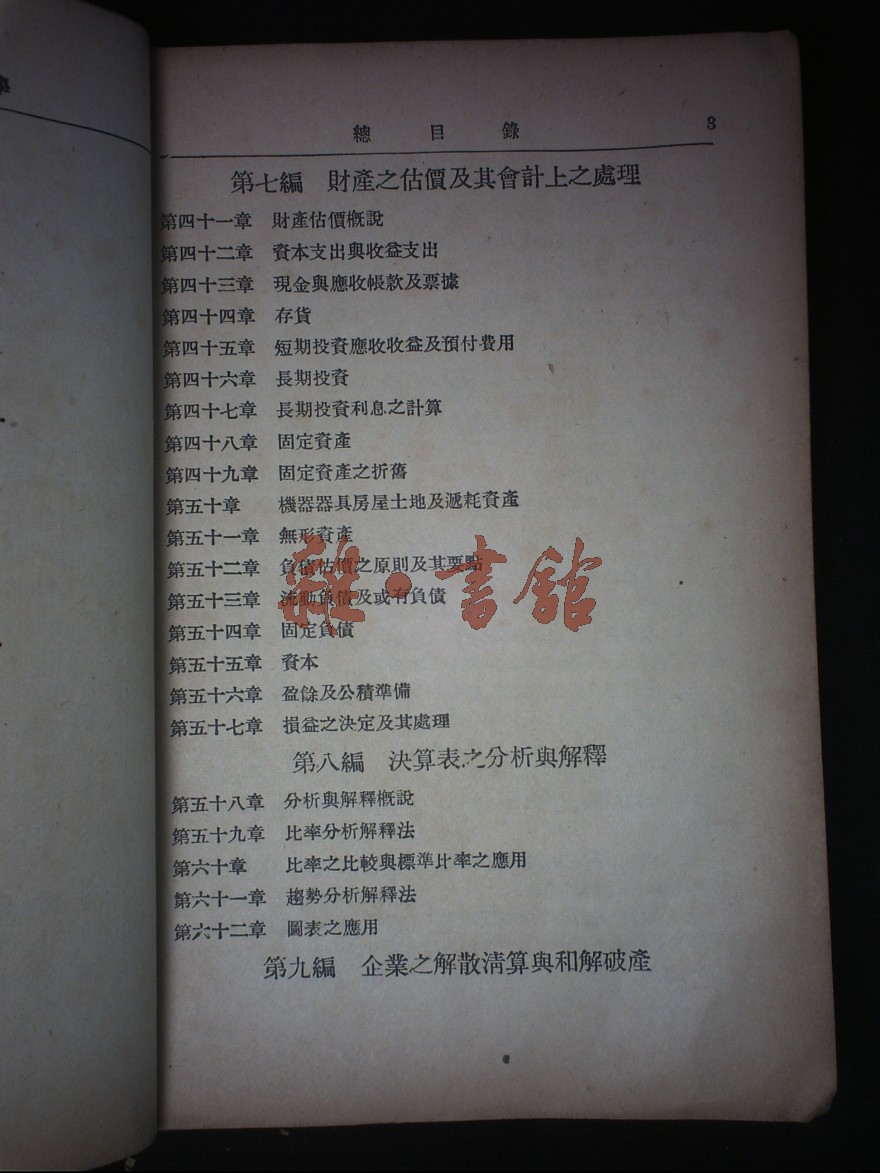 總目錄 3
第七編 財產之估價及其會計上之處理
第四十一章 財產估價概說
第四十二章 資本支出與收益支出
第四十三章 現金與應收帳款及票據
第四十四章 存貨
第四十五章 短期投資應收收益及預付費用
第四十六章 長期投資
第四十七章 長期投資利息之計算
第四十八章 固定資產
第四十九章 固定資產之折舊
第五十章 機器器具房屋土地及遞耗資產
第五十一章 無形資產
第五十二章 負債估價之原則及其要點
第五十三章 流動負債及或有負債
第五十四章 固定負債
第五十五章 資本
第五十六章 盈餘及公積準備
第五十七章 損益之決定及其處理
第八編 決算表之分析與解釋
第五十八章 分析與解釋概說
第五十九章 比率分析解釋法
第六十章 比率之比較與標準比率之應用
第六十一章 趨勢分析解釋法
第六十二章 圖表之應用
第九編 企業之解散清算與和解破產
雜·書館